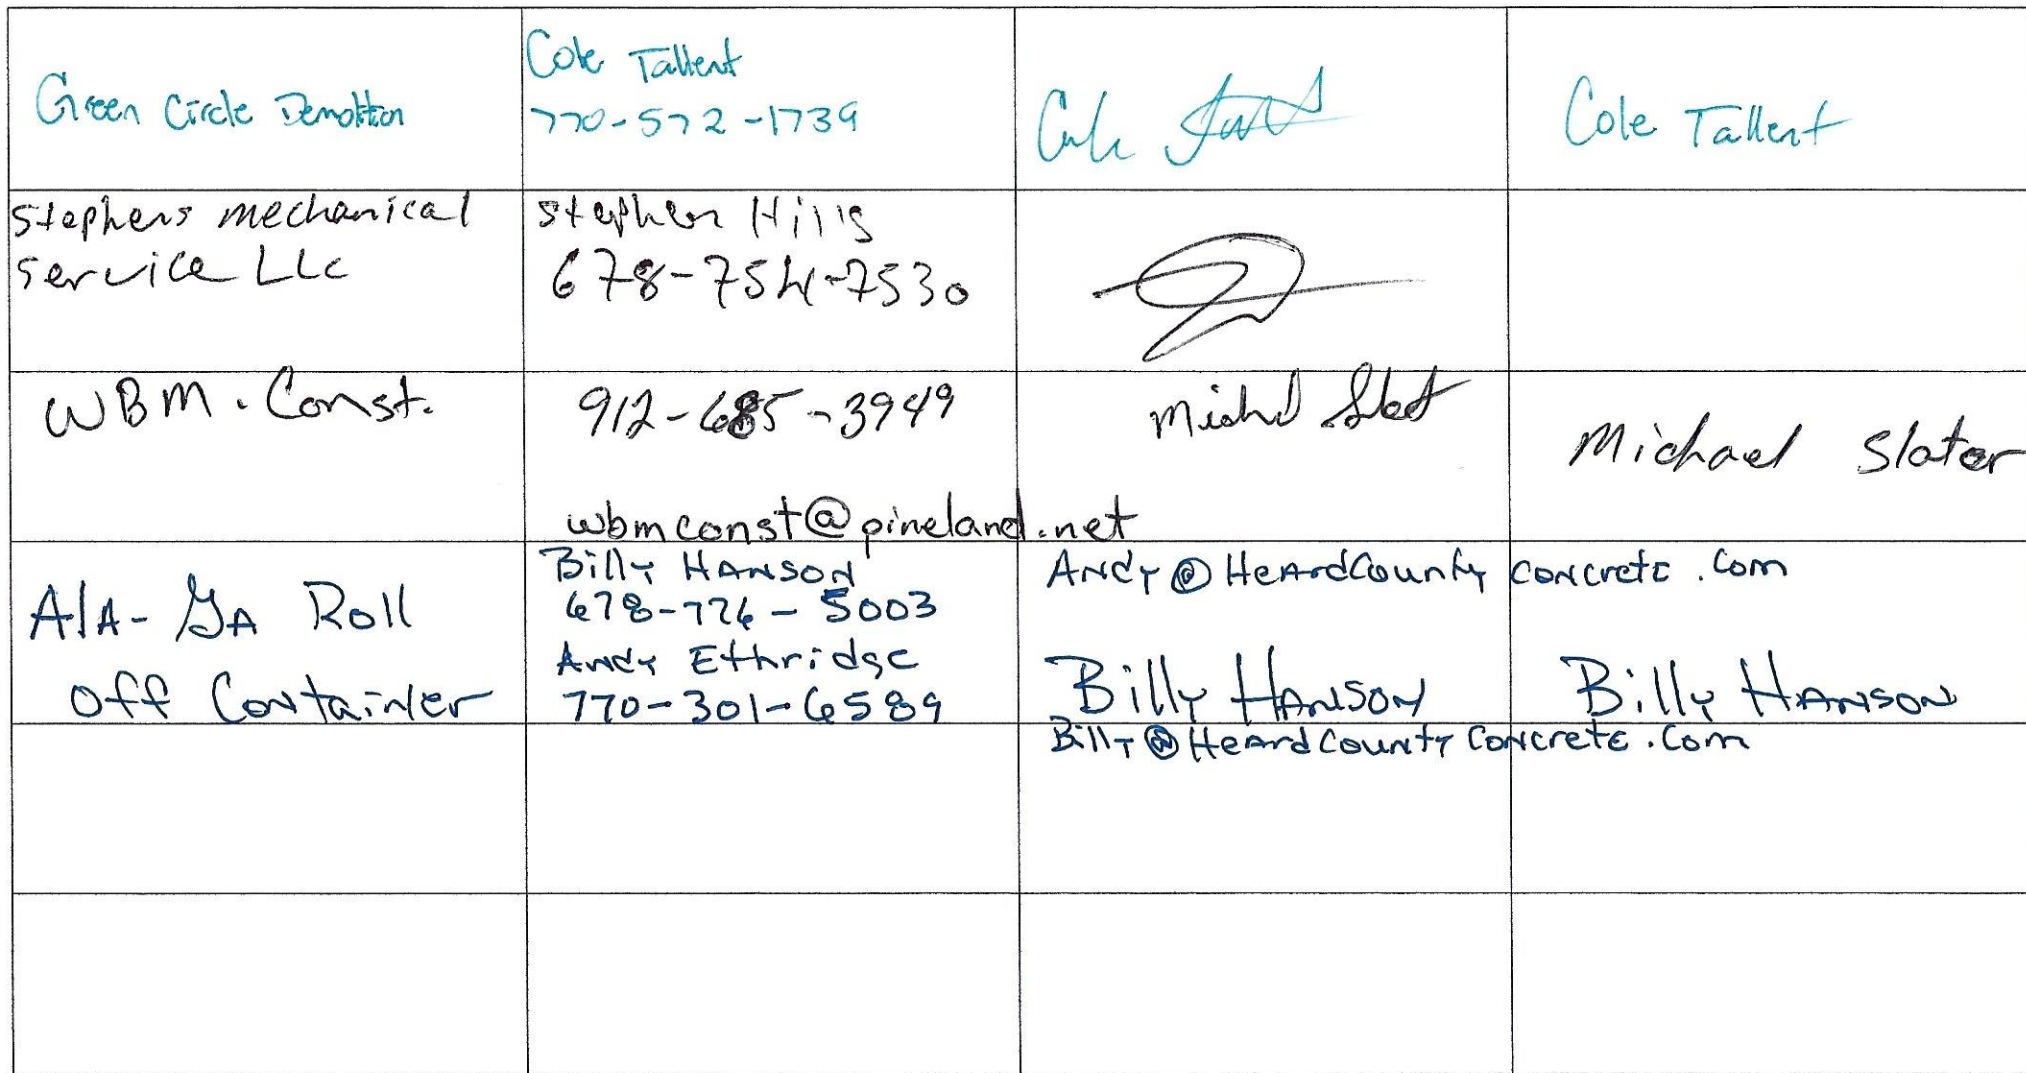 Green Circle Demolition
Cole Tallent
770-572-1739
Cole Tallent
stephens mechanical
service LLc
stephen Hills
678-754-7530
WBM. Const.
912-685-3949
wbmconst@pineland.net
Michael Slater
AlA-GA Roll
Off Container
Billy HANSON
678-776-5003
Andy Ethridge
770-301-6589
Andy@HeardCountyConcrete.Com
Billy HANSON
Billy HANSON
Billy@HeardCountyConcrete.Com